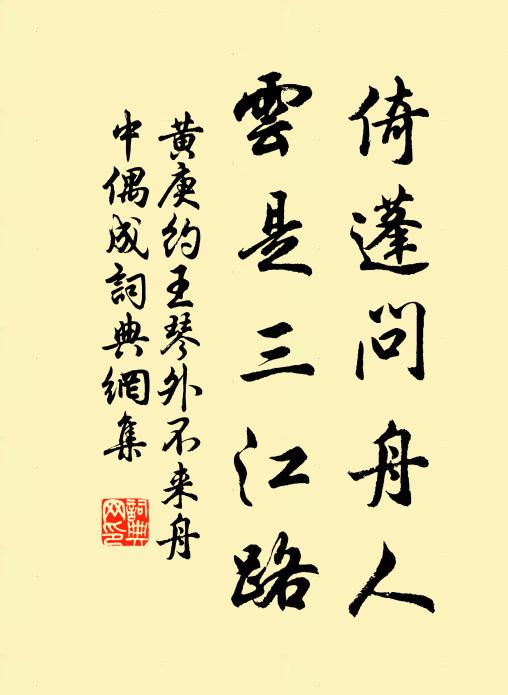 倚蓬問舟人
雲是三江路
黄庚约王琴外不来舟
中偶成詞典網集
詞典
网印